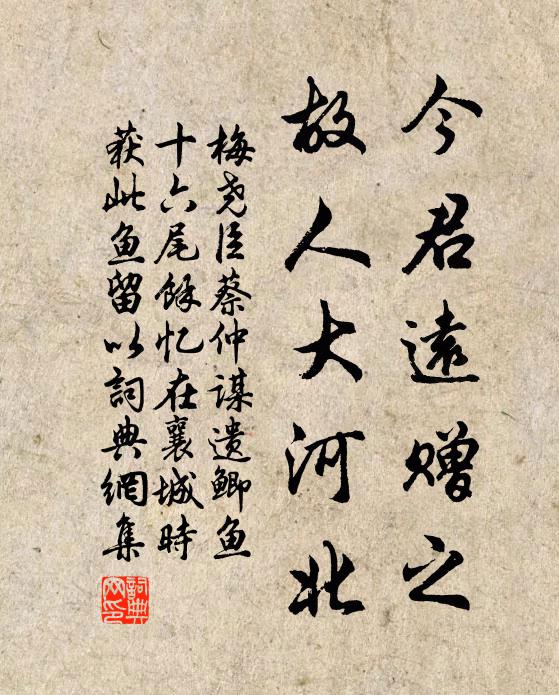 今君遠赠之
故人大河北
梅尧臣蔡仲谋遗鲫鱼
十六尾馀忆在襄城時
获此鱼留以詞典網集
詞典
网印